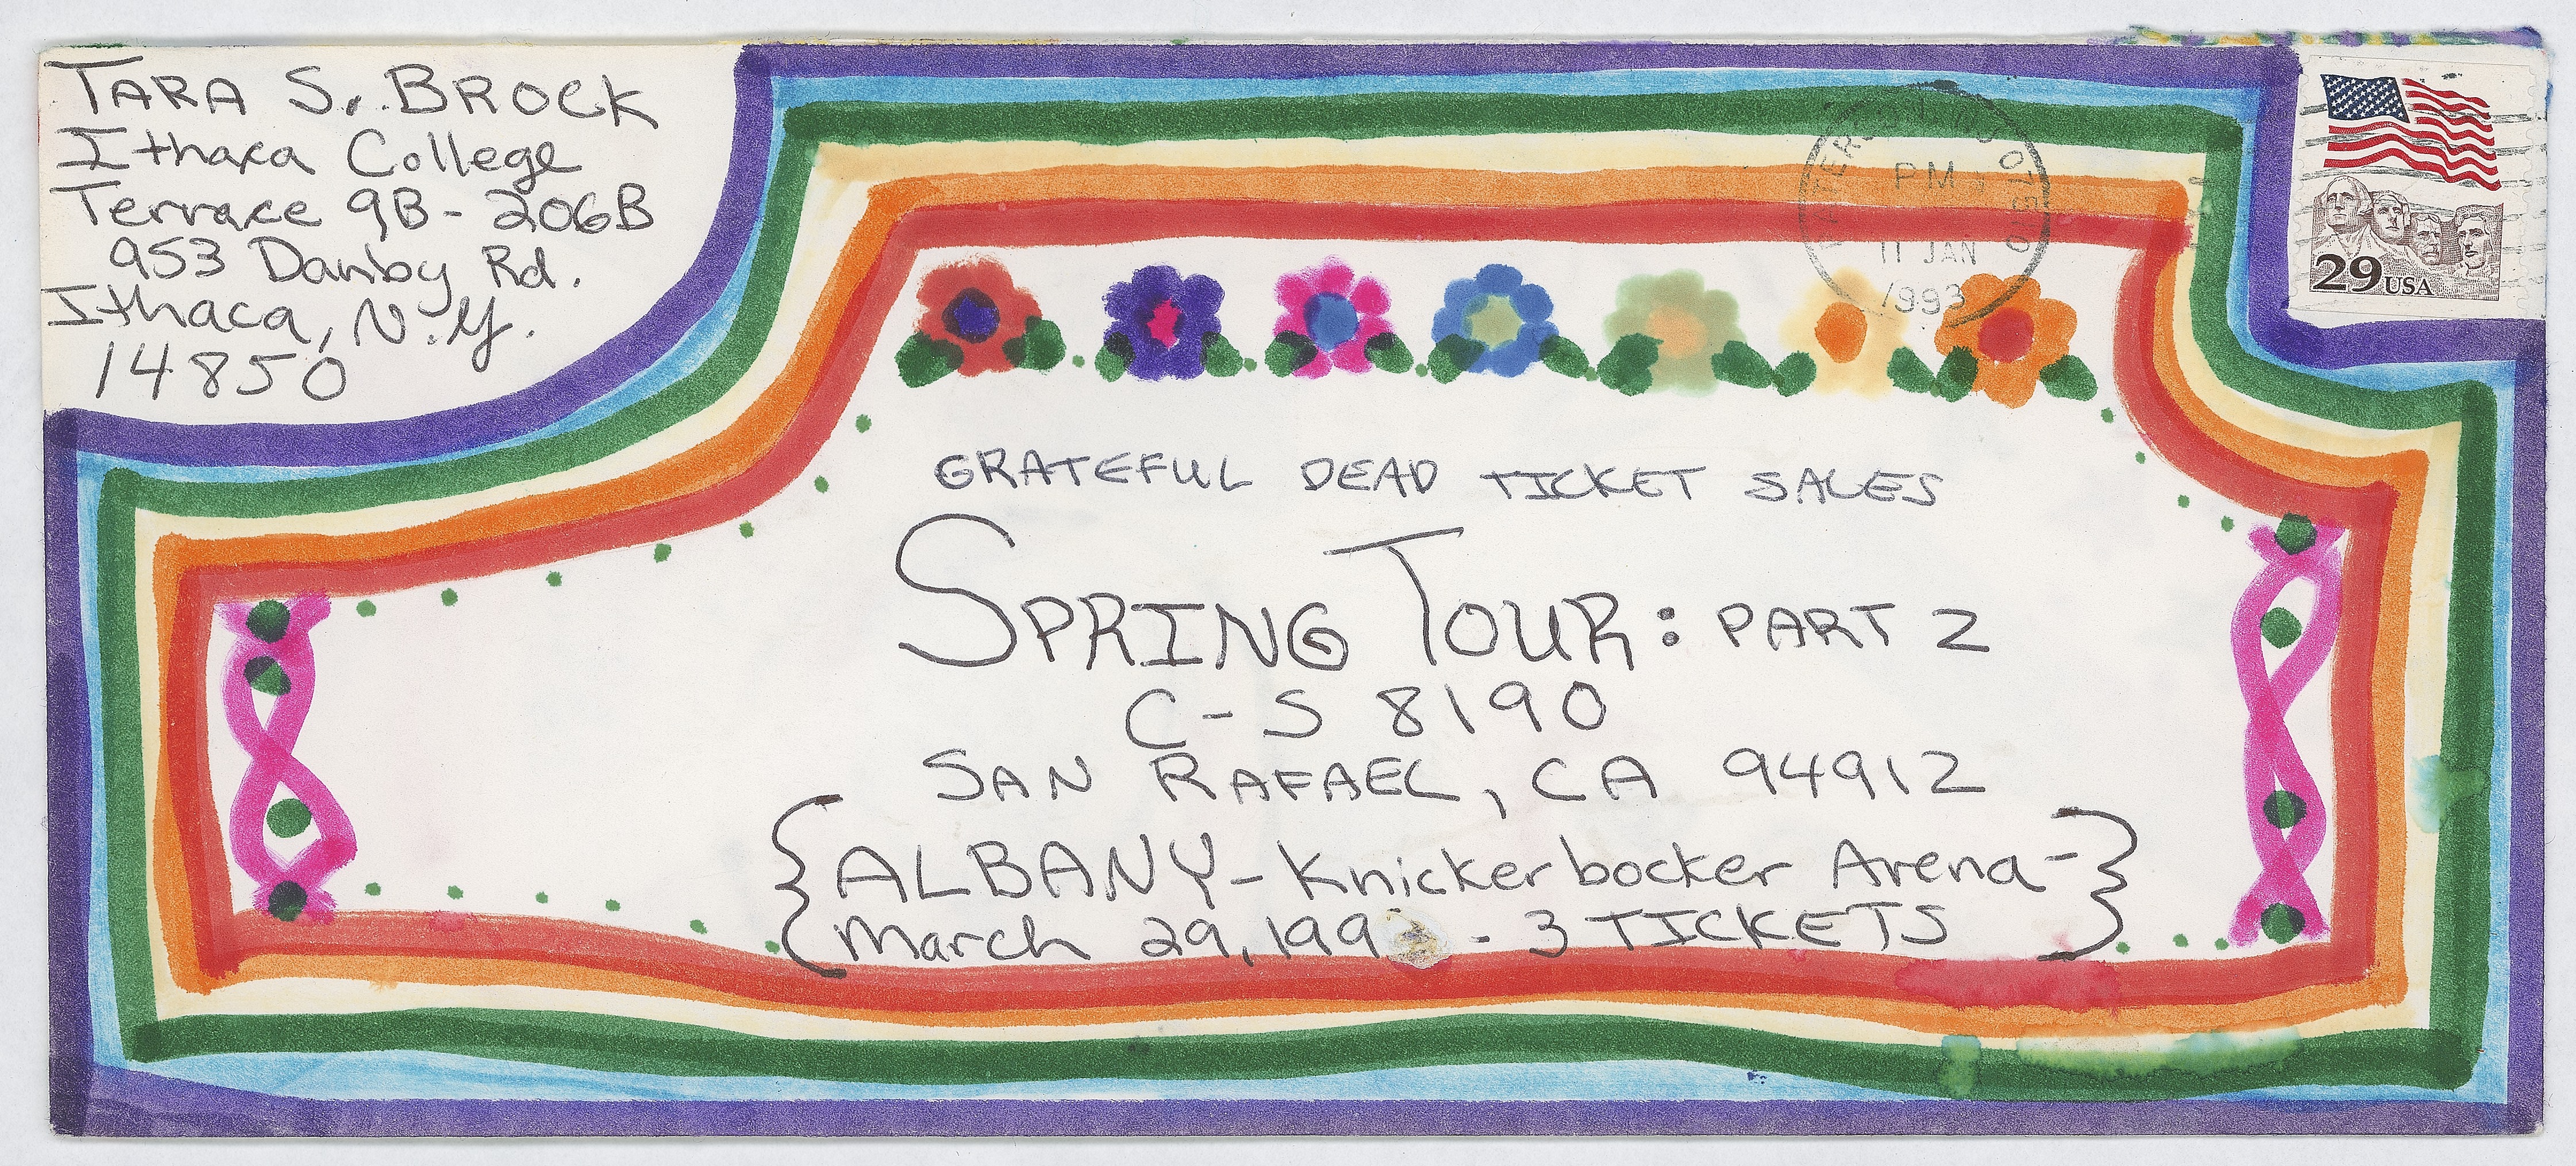 TARA S. BROCK
Ithaca College
Terrace 9B - 206B
953 Danby Rd.
Ithaca, N.Y.
14850
PM
11 JAN
1993
29 USA
GRATEFUL DEAD TICKET SALES
SPRING TOUR: PART 2
C-S 8190
SAN RAFAEL, CA 94912
{ALBANY - Knickerbocker Arena -}
March 29, 199 - 3 TICKETS